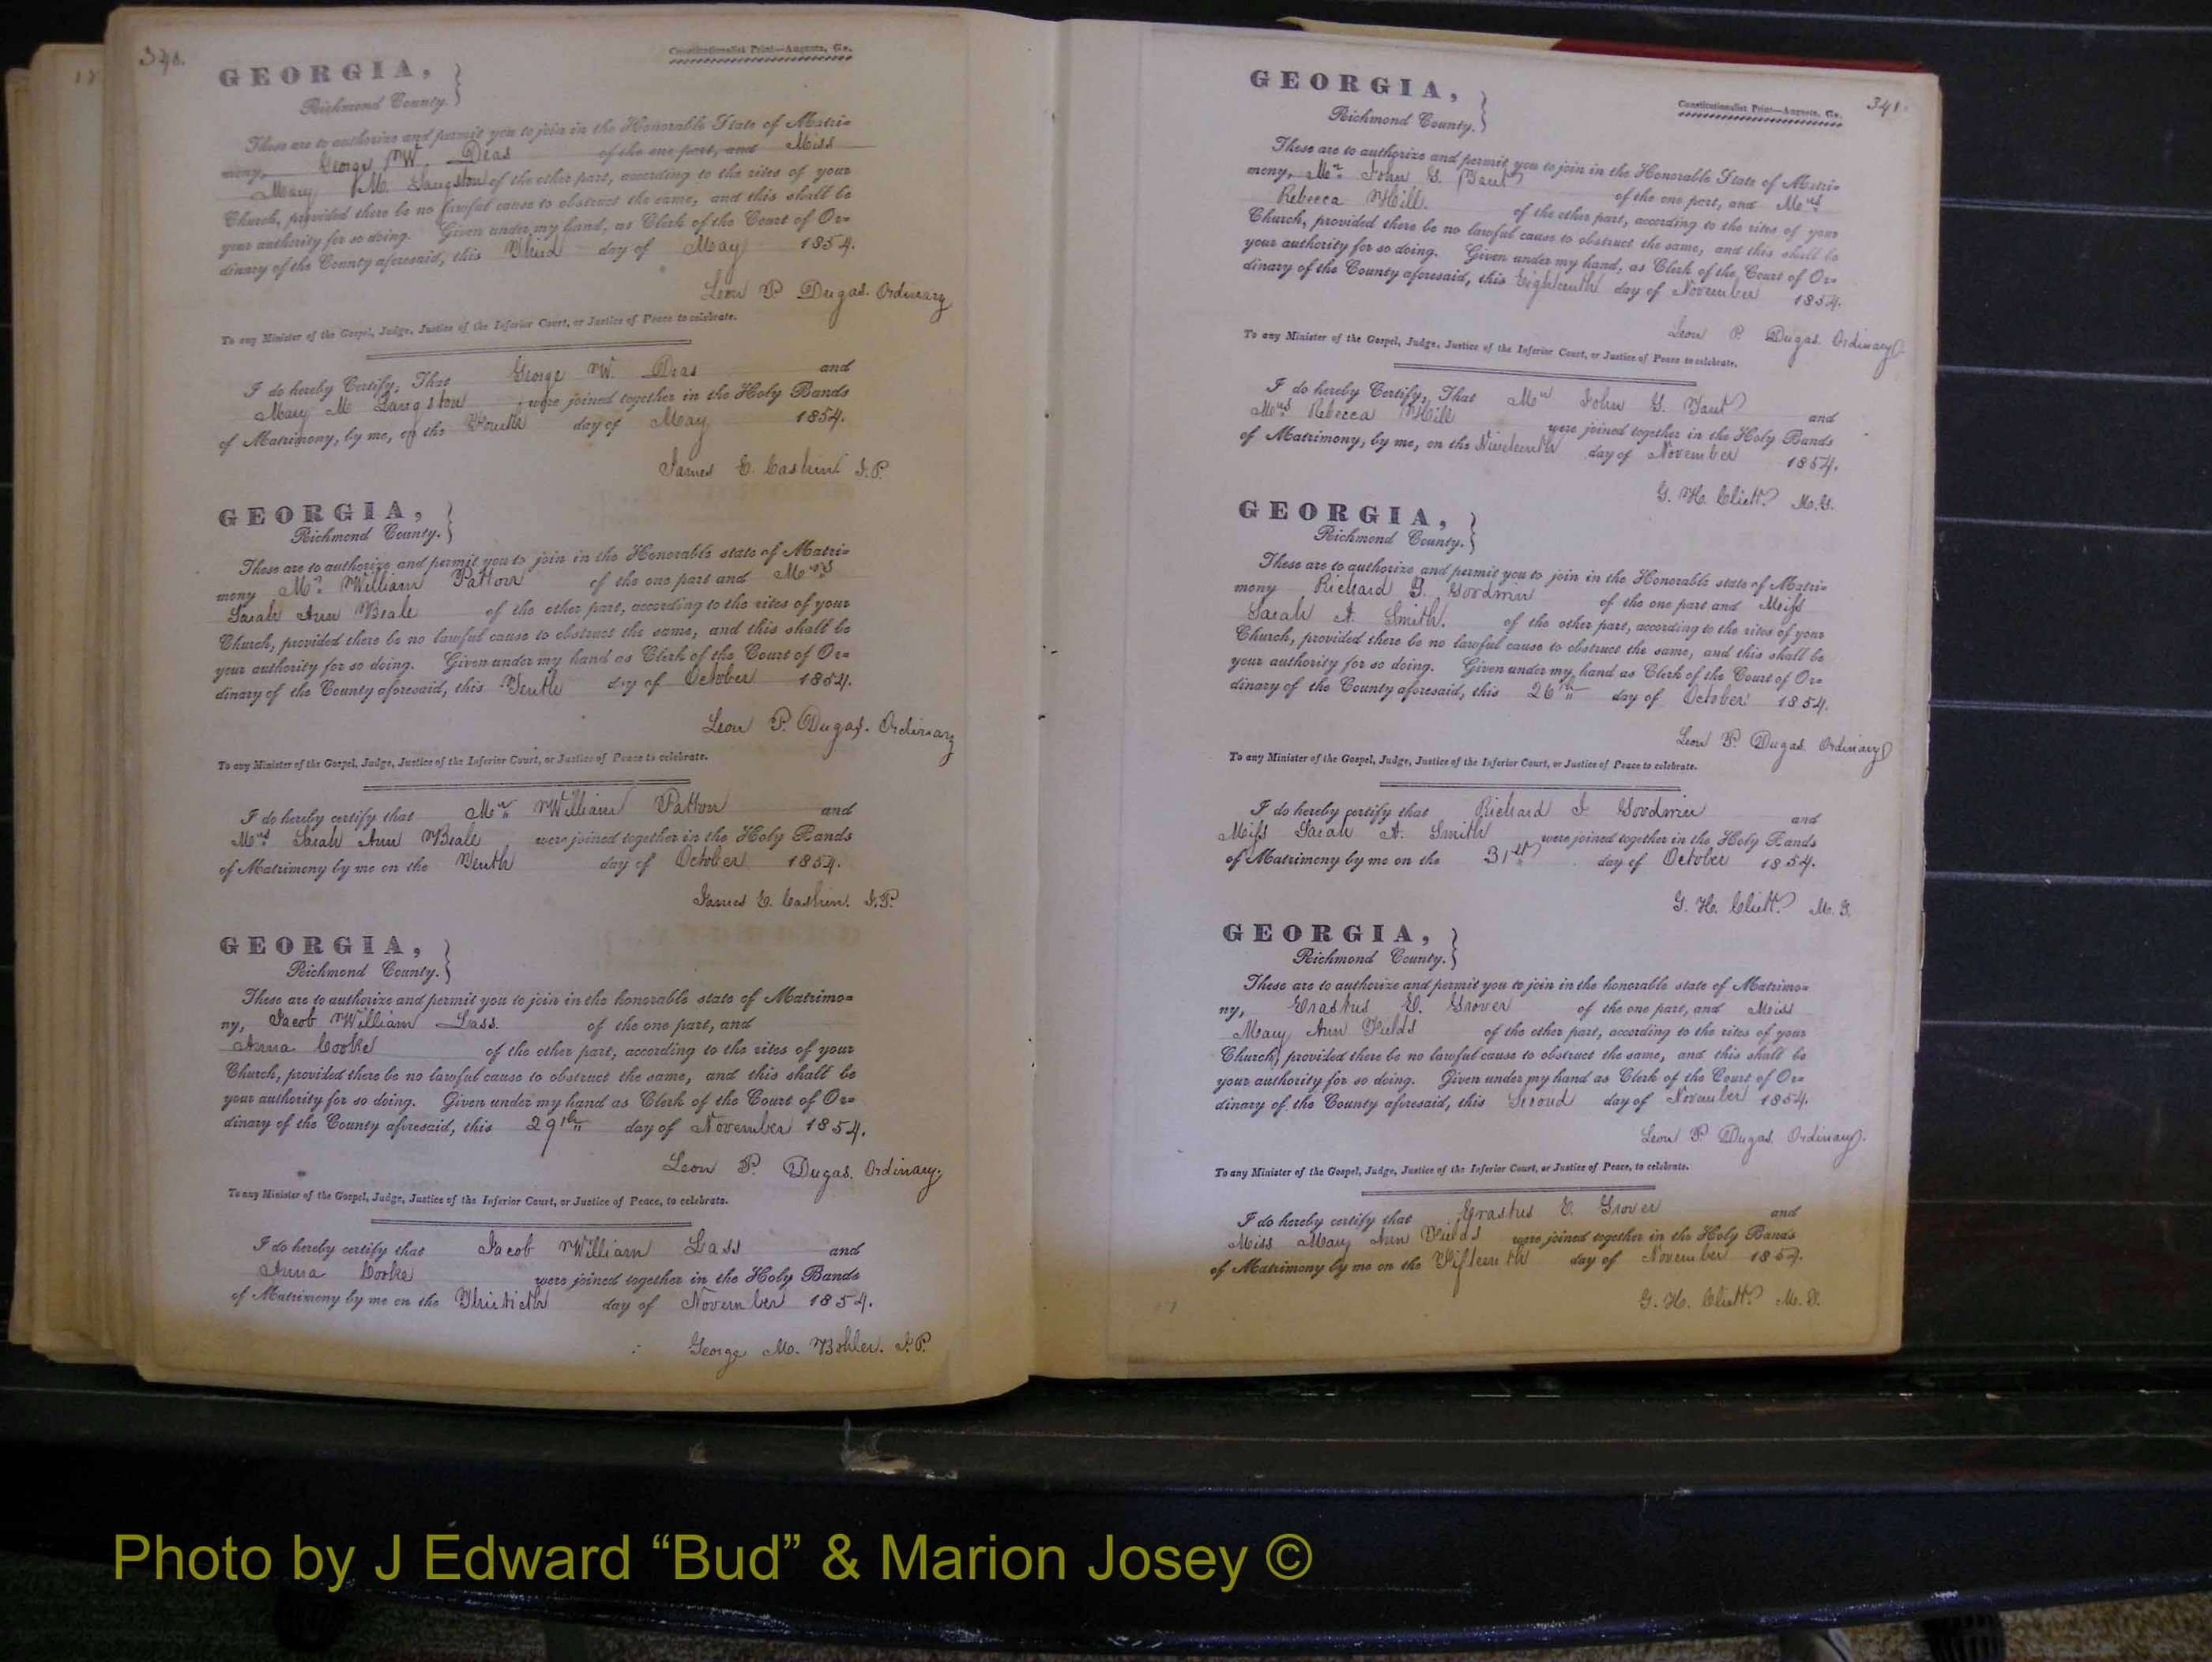 340.
Constitutionalist Print—Augusta, Ga.
GEORGIA,
Richmond County.
These are to authorize and permit you to join in the Honorable State of Matri=
mony, George W. Deas of the one part, and Miss
Mary M. Langston of the other part, according to the rites of your
Church, provided there be no lawful cause to obstruct the same, and this shall be
your authority for so doing. Given under my hand, as Clerk of the Court of Or=
dinary of the County aforesaid, this Third day of May 1854.
Leon P. Dugas. Ordinary
To any Minister of the Gospel, Judge, Justice of the Inferior Court, or Justice of Peace to celebrate.
I do hereby Certify, That George W. Deas and
Mary M Langston were joined together in the Holy Bands
of Matrimony, by me, on the Fourth day of May 1854.
James E. Cashin J.P.
GEORGIA,
Richmond County.
These are to authorize and permit you to join in the Honorable state of Matri=
mony Mr. William Patton of the one part and Mrs
Sarah Ann Beale of the other part, according to the rites of your
Church, provided there be no lawful cause to obstruct the same, and this shall be
your authority for so doing. Given under my hand as Clerk of the Court of Or=
dinary of the County aforesaid, this Tenth day of October 1854.
Leon P. Dugas. Ordinary
To any Minister of the Gospel, Judge, Justice of the Inferior Court, or Justice of Peace to celebrate.
I do hereby certify that Mr. William Patton and
Mrs Sarah Ann Beale were joined together in the Holy Bands
of Matrimony by me on the Tenth day of October 1854.
James E. Cashin. J.P.
GEORGIA,
Richmond County.
These are to authorize and permit you to join in the honorable state of Matrimo=
ny, Jacob William Lass. of the one part, and
Anna Cooke of the other part, according to the rites of your
Church, provided there be no lawful cause to obstruct the same, and this shall be
your authority for so doing. Given under my hand as Clerk of the Court of Or=
dinary of the County aforesaid, this 29th day of November 1854.
Leon P. Dugas. Ordinary.
To any Minister of the Gospel, Judge, Justice of the Inferior Court, or Justice of Peace, to celebrate.
I do hereby certify that Jacob William Lass and
Anna Cooke were joined together in the Holy Bands
of Matrimony by me on the Thirtieth day of November 1854.
George M. Bohler. J.P.
341.
Constitutionalist Print—Augusta, Ga.
GEORGIA,
Richmond County.
These are to authorize and permit you to join in the Honorable State of Matri=
mony, Mr. John G. of the one part, and Mrs
Rebecca Hill. of the other part, according to the rites of your
Church, provided there be no lawful cause to obstruct the same, and this shall be
your authority for so doing. Given under my hand, as Clerk of the Court of Or=
dinary of the County aforesaid, this Eighteenth day of November 1854.
Leon P. Dugas. Ordinary.
To any Minister of the Gospel, Judge, Justice of the Inferior Court, or Justice of Peace to celebrate.
I do hereby Certify, That Mr John G. and
Mrs Rebecca Hill were joined together in the Holy Bands
of Matrimony, by me, on the Nineteenth day of November 1854.
G. H. Cliett. M.G.
GEORGIA,
Richmond County.
These are to authorize and permit you to join in the Honorable state of Matri=
mony Richard G. Goodwin of the one part and Miss
Sarah A. Smith. of the other part, according to the rites of your
Church, provided there be no lawful cause to obstruct the same, and this shall be
your authority for so doing. Given under my hand as Clerk of the Court of Or=
dinary of the County aforesaid, this 26th day of October 1854.
Leon P. Dugas. Ordinary
To any Minister of the Gospel, Judge, Justice of the Inferior Court, or Justice of Peace to celebrate.
I do hereby certify that Richard Goodwin and
Miss Sarah A. Smith were joined together in the Holy Bands
of Matrimony by me on the 31st day of October 1854.
G. H. Cliett. M.G.
GEORGIA,
Richmond County.
These are to authorize and permit you to join in the honorable state of Matrimo=
ny, Erastus E. Grover of the one part, and Miss
Mary Ann Fields of the other part, according to the rites of your
Church, provided there be no lawful cause to obstruct the same, and this shall be
your authority for so doing. Given under my hand as Clerk of the Court of Or=
dinary of the County aforesaid, this Second day of November 1854.
Leon P. Dugas. Ordinary.
To any Minister of the Gospel, Judge, Justice of the Inferior Court, or Justice of Peace, to celebrate.
I do hereby certify that Erastus E. Grover and
Miss Mary Ann Fields were joined together in the Holy Bands
of Matrimony by me on the Fifteenth day of November 1854.
G. H. Cliett. M.G.
Photo by J Edward “Bud” & Marion Josey ©